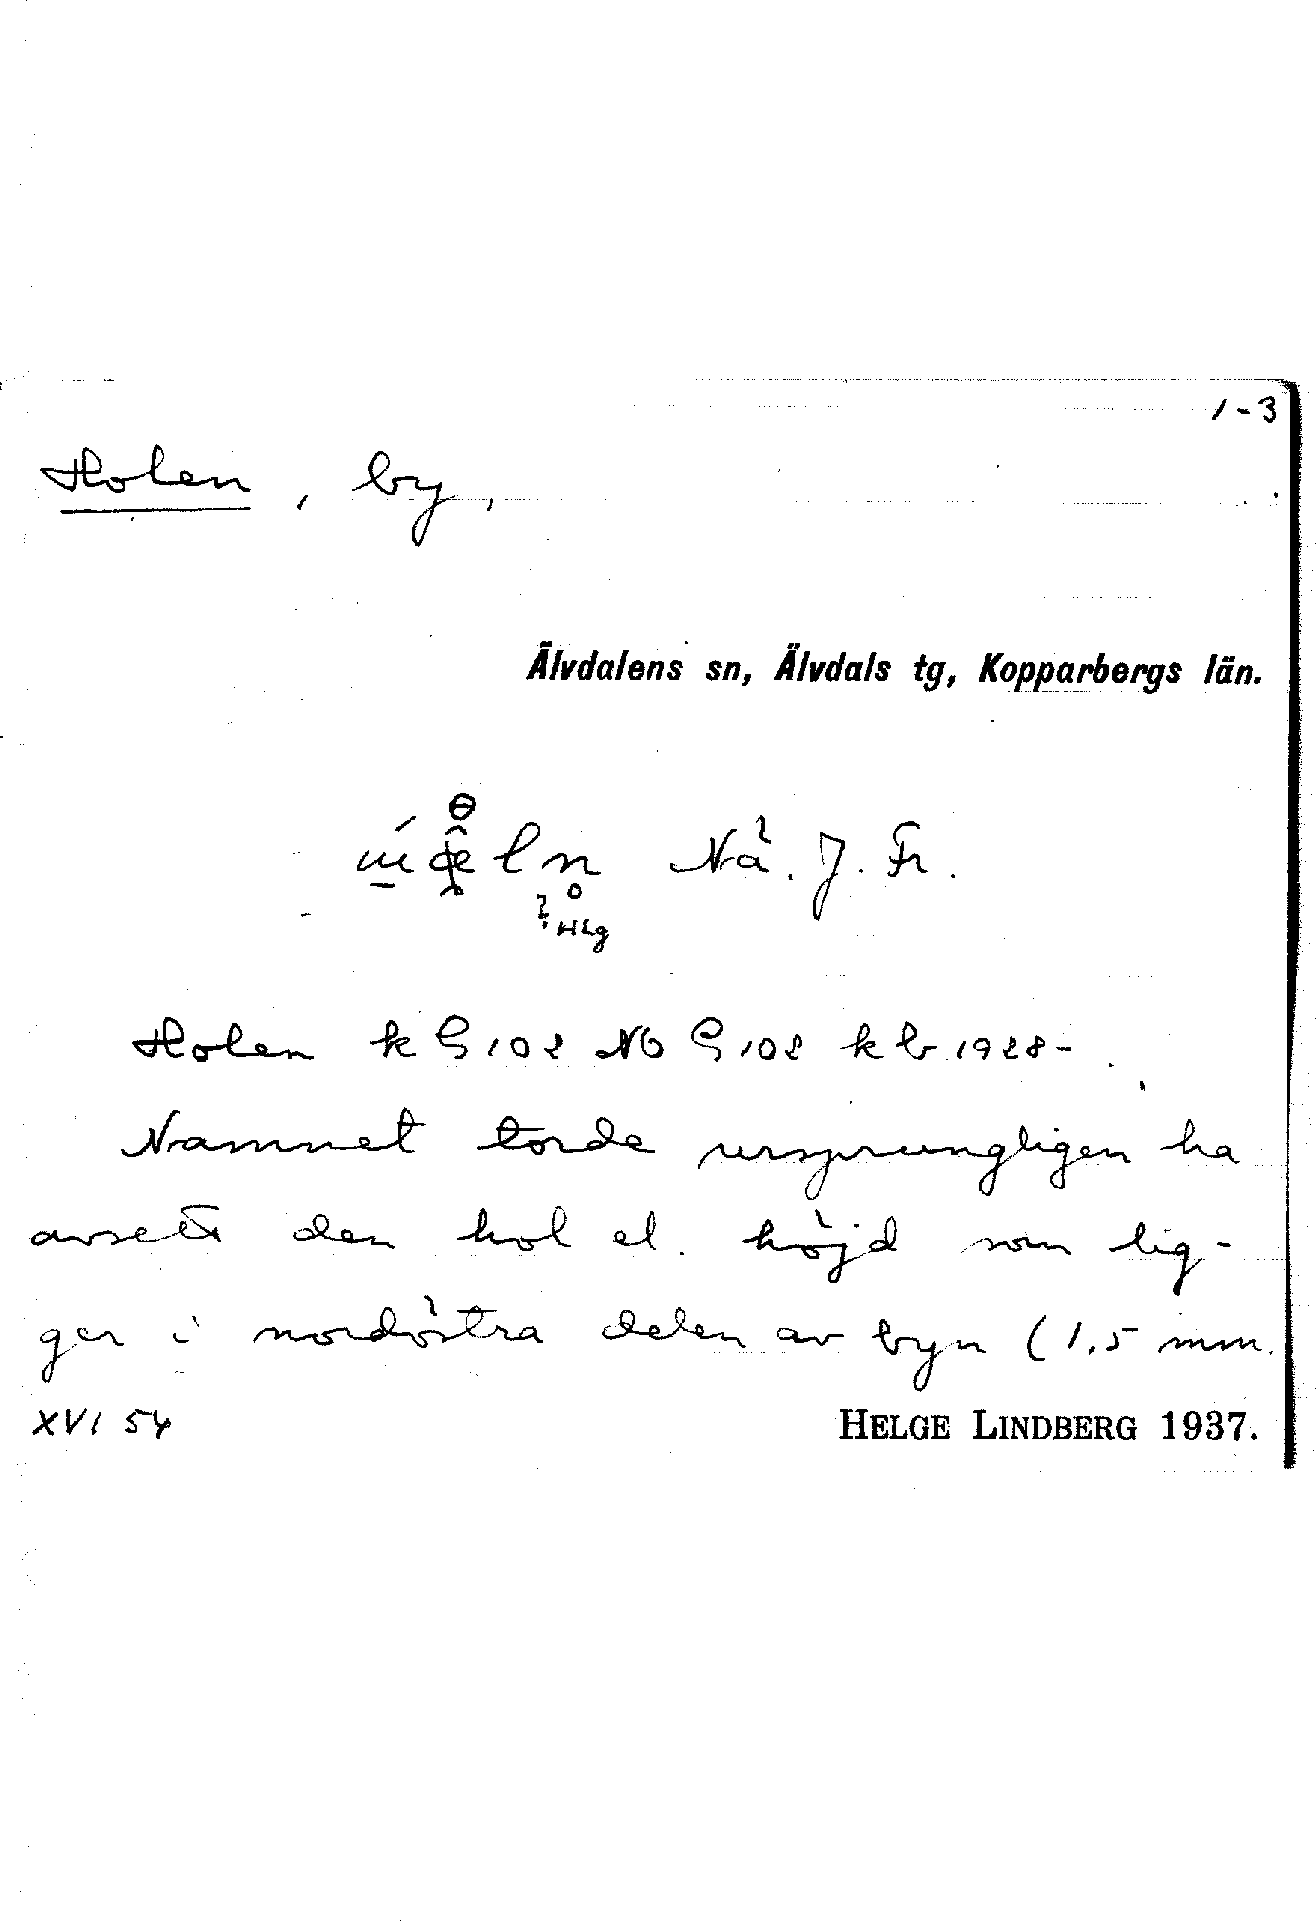 1-3
Holen, by,
Älvdalens sn, Älvdals tg, Kopparbergs län.
Nä. J. Fr.
Hlg
Holen k G 102 NO G 102 kb 1928-
Namnet torde ursprungligen ha
avsett den hol el. höjd som lig-
ger i nordöstra delen av byn (1,5 mm.
XVI 54
HELGE LINDBERG 1937.